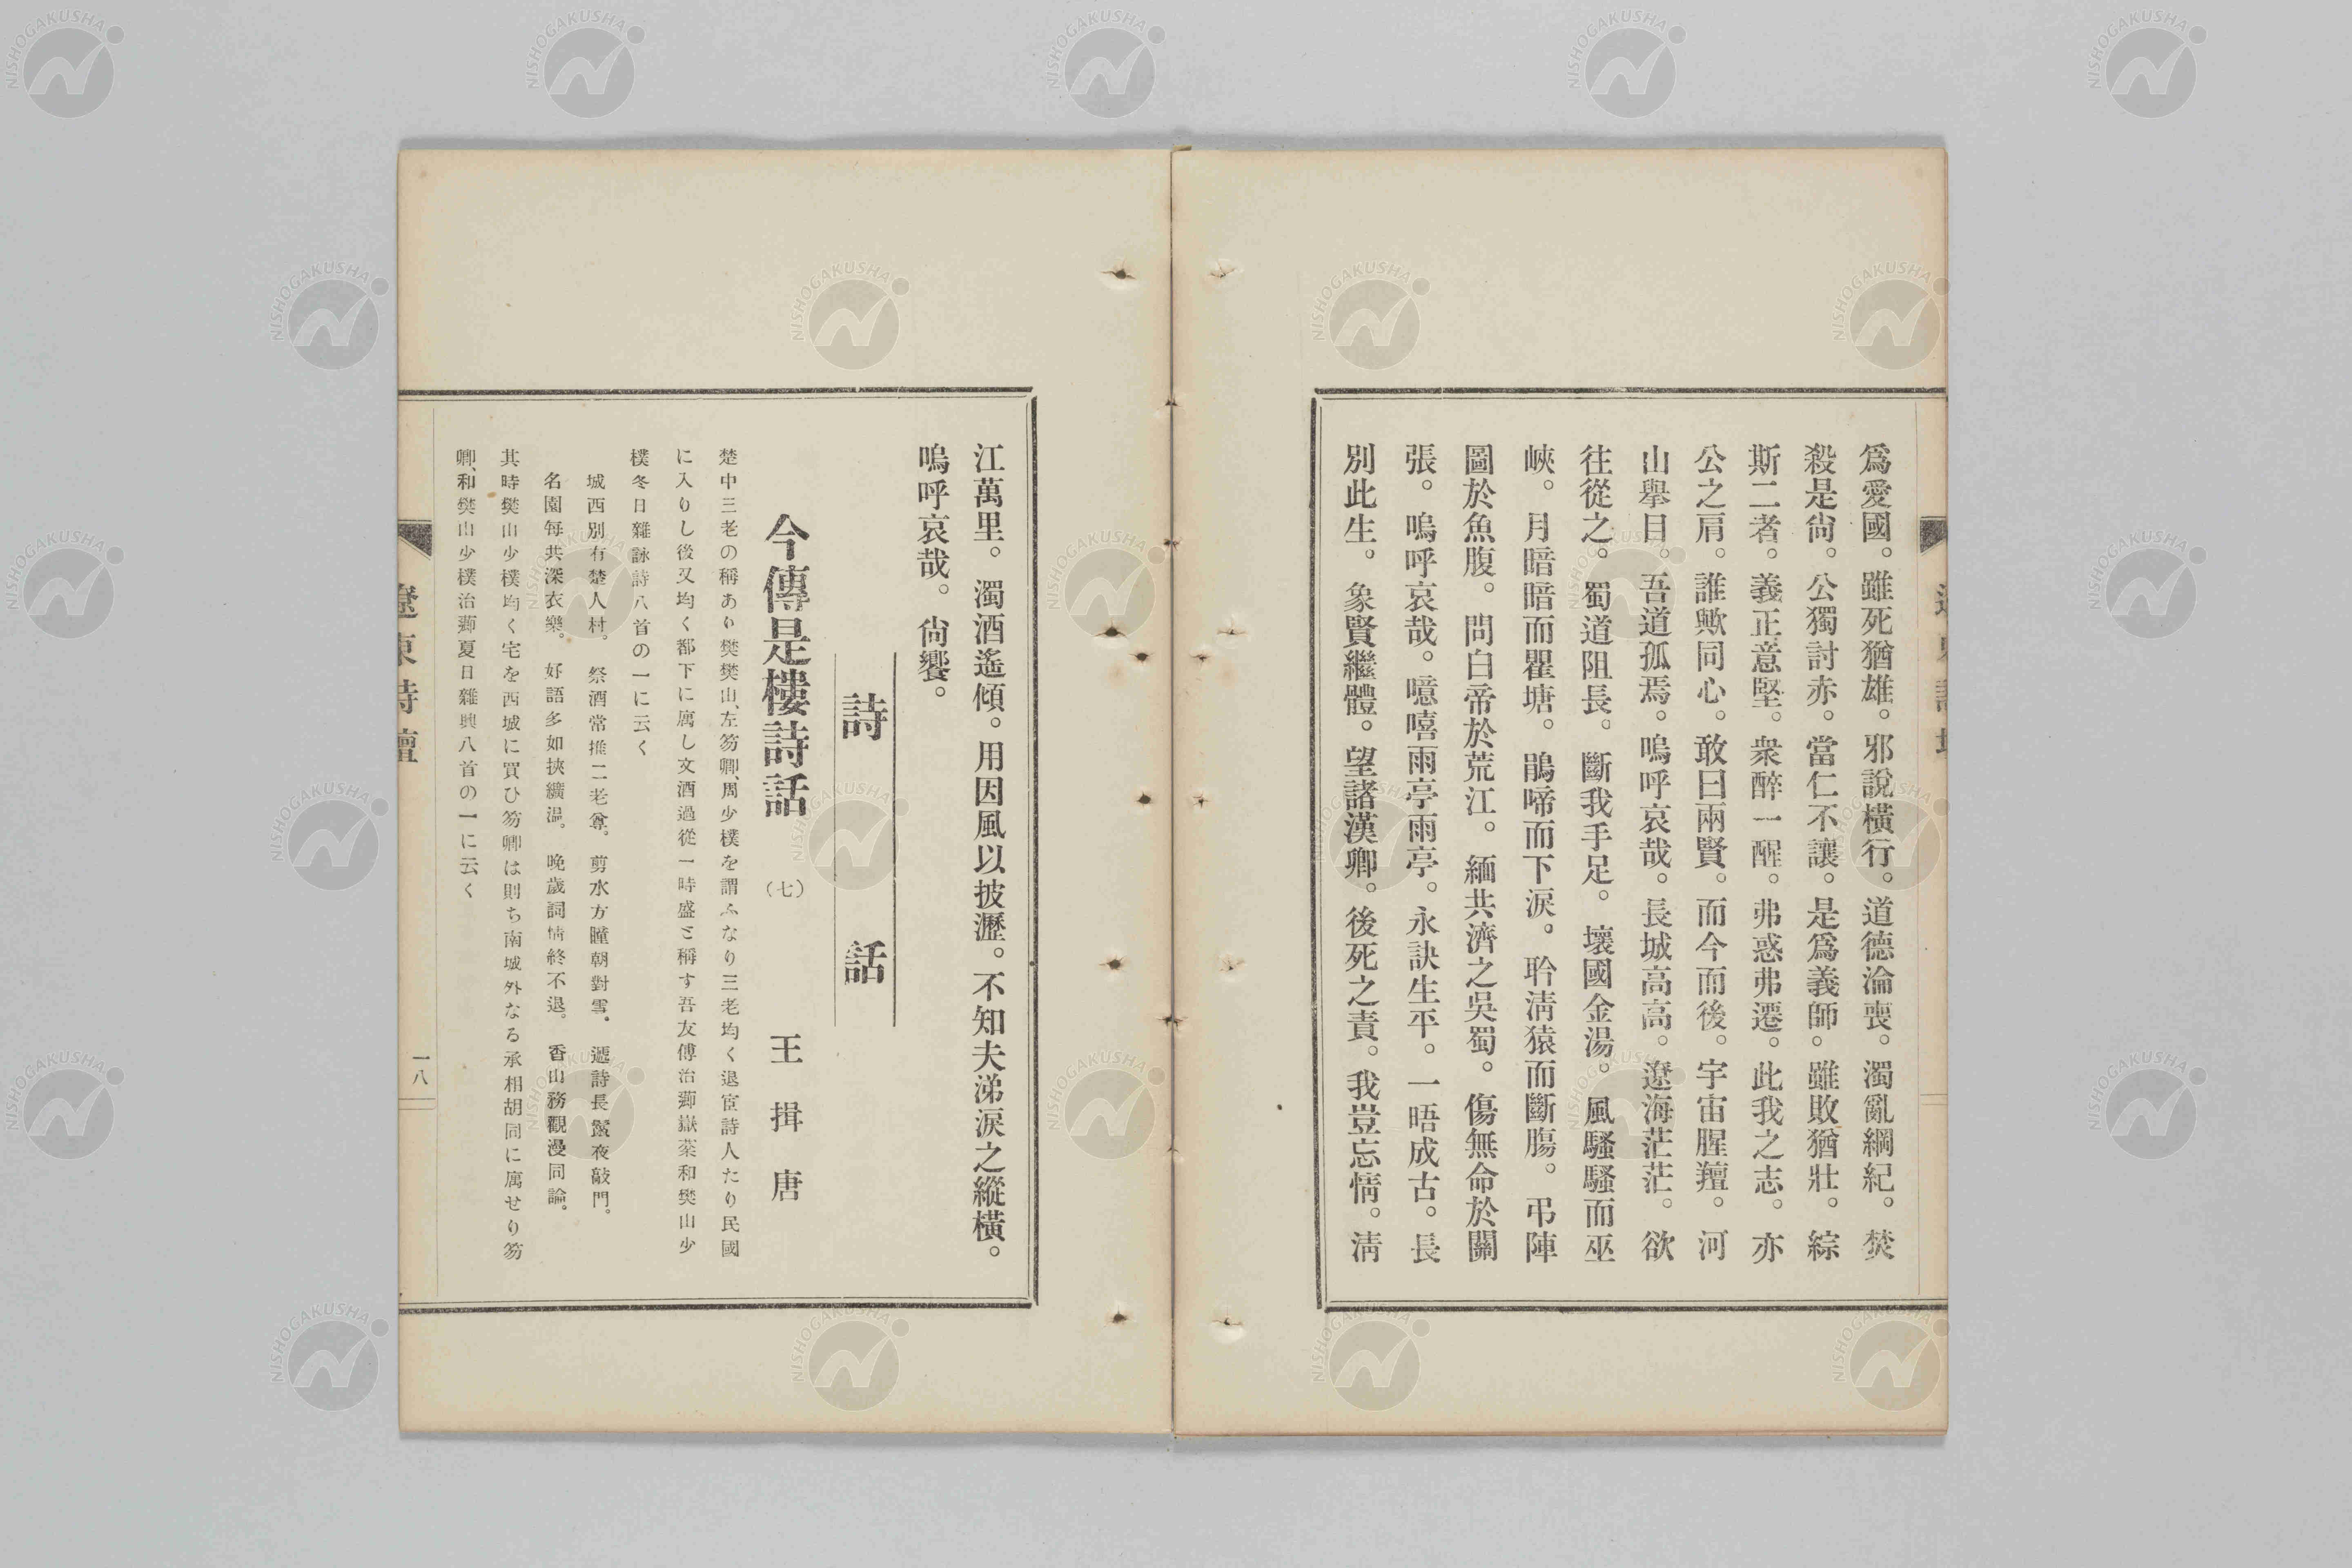 爲愛國。雖死猶雄。邪說橫行。道德淪喪。濁亂綱紀。焚
殺是尙。公獨討赤。當仁不讓。是爲義師。雖敗猶壯。綜
斯二者。義正意堅。衆醉一醒。弗惑弗遷。此我之志。亦
公之肩。誰歟同心。敢曰兩賢。而今而後。宇宙腥羶。河
山擧目。吾道孤焉。嗚呼哀哉。長城高高。遼海茫茫。欲
往從之。蜀道阻長。斷我手足。壞國金湯。風騷騷而巫
峽。月暗暗而瞿塘。鵑啼而下淚。聆淸猿而斷膓。弔陣
圖於魚腹。問白帝於荒江。緬共濟之吳蜀。傷無命於關
張。嗚呼哀哉。噫嘻雨亭雨亭。永訣生平。一晤成古。長
別此生。象賢繼體。望諸漢卿。後死之責。我豈忘情。淸
江萬里。濁酒遙傾。用因風以披瀝。不知夫涕淚之縱橫。
嗚呼哀哉。尙饗。
詩話
今傳是樓詩話（七）　王揖唐
楚中三老の稱あり樊樊山、左笏卿、周少樸を謂ふなり三老均く退宦詩人たり民國
に入りし後又均く都下に属し文酒過從一時盛と稱す吾友傅治薌嶽棻和樊山少
樸冬日雜詠詩八首の一に云く
城西別有楚人村。祭酒常推二老尊。剪水方瞳朝對雪。遞詩長鬚夜敲門。
名園每共深衣樂。好語多如挾纊溫。晩歲詞情終不退。香山務觀漫同論。
其時樊山少樸均く宅を西城に買ひ笏卿は則ち南城外なる承相胡同に属せり笏
卿、和樊山少樸治薌夏日雜興八首の一に云く
遼東詩壇
一八